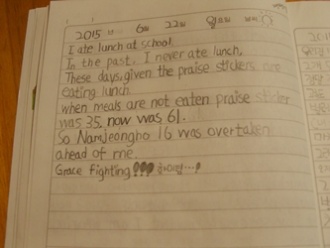 2015 년 6월 22일 월요일
I ate lunch at school.
In the past, I never ate lunch,
These days, given the praise stickers are
eating lunch
when meals are not eaten praise sticker
was 35, now was 61.
So Namjeongho 16 was overtaken
ahead of me.
Grace Fighting!!!